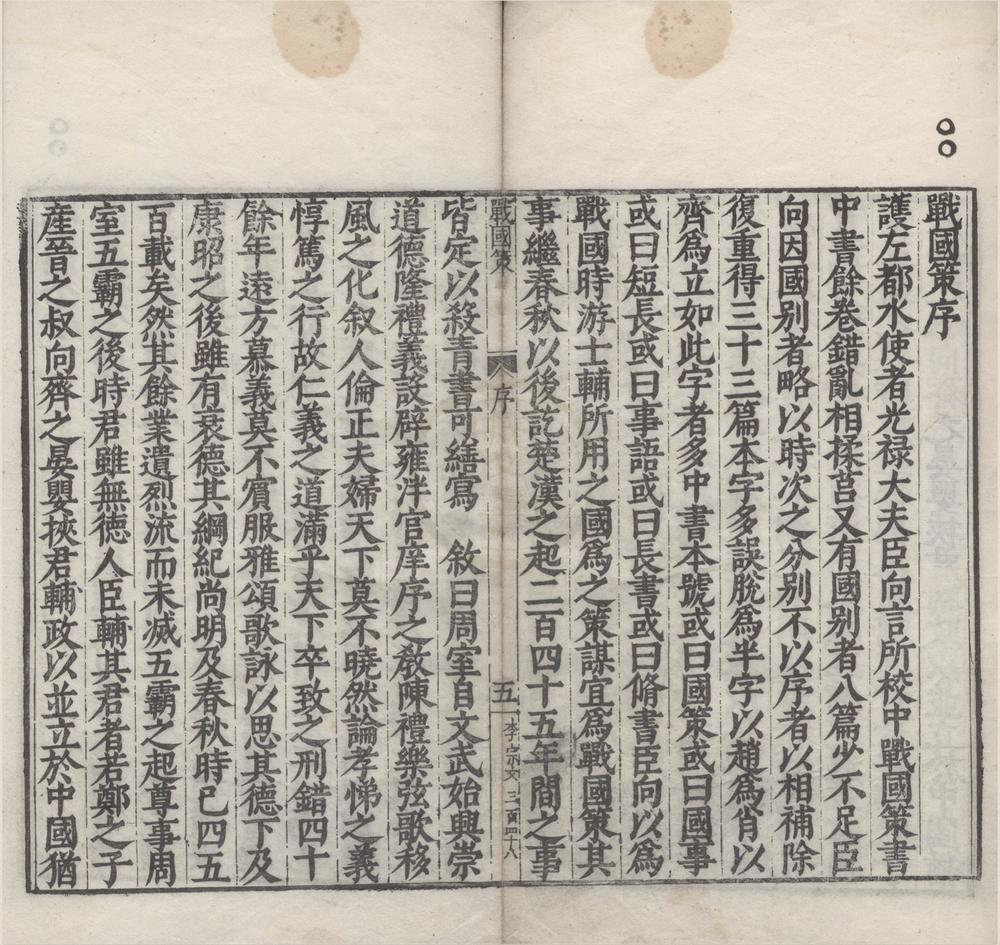 戰國策序
護左都水使者光禄大夫臣向言所校中戰國策書
中書餘卷錯亂相揉莒又有國别者八篇少不足臣
向因國别者略以時次之分别不以序者以相補除
復重得三十三篇本字多誤脫爲半字以趙爲肖以
齊爲立如此字者多中書本號或曰國策或曰國事
或曰短長或曰事語或曰長書或曰脩書臣向以爲
戰國時游士輔所用之國爲之策謀宜爲戰國策其
事繼春秋以後訖楚漢之起二百四十五年間之事
戰國策 序 五 李宗文 三百四十八
皆定以殺青書可繕寫 敘曰周室自文武始興崇
道德隆禮義設辟雍泮官庠序之敎陳禮樂弦歌移
風之化叙人倫正夫婦天下莫不曉然論孝悌之義
惇篤之行故仁義之道滿乎天下卒致之刑錯四十
餘年遠方慕義莫不賓服雅頌歌詠以思其德下及
康昭之後雖有衰德其綱紀尚明及春秋時已四五
百載矣然其餘業遺烈流而未滅五霸之起尊事周
室五霸之後時君雖無徳人臣輔其君者若鄭之子
産晉之叔向齊之晏嬰挾君輔政以並立於中國猶